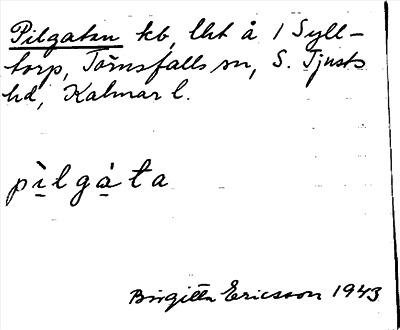 Pilgatan kb, lht å 1 Syll-
torp, Törnsfalls sn, S. Tjusts
hd, Kalmar l.
pìlgàta
Birgitta Ericsson 1943